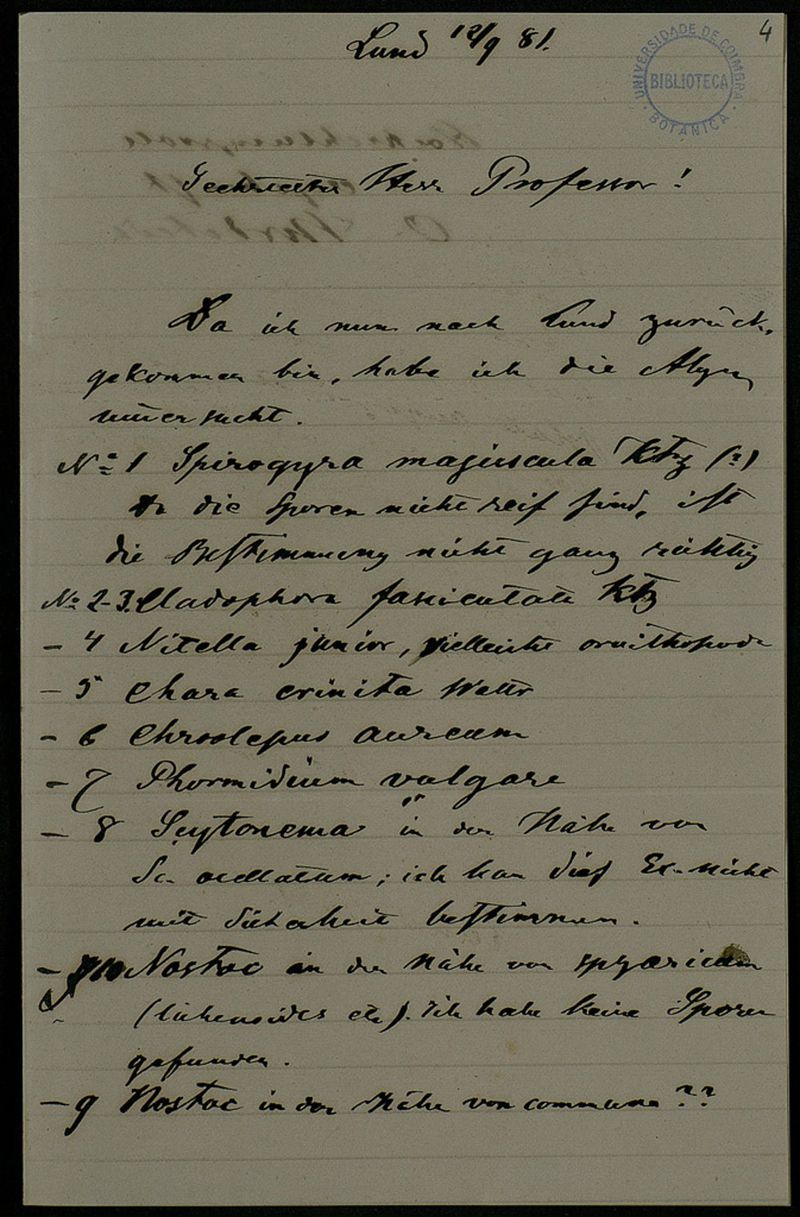 4
UNIVERSIDADE DE COIMBRA
BIBLIOTECA
BOTANICA
Lund 12/9 81.
Geehrter Herr Professor!
Da ich nun nach Lund zurück-
gekommen bin, habe ich die Algen
untersucht.
No 1 Spirogyra majuscula Ktz (?)
da die Sporen nicht reif sind, ist
die Bestimmung nicht ganz richtig
No 2-3. Cladophora Ktz
– 4 Nitella junior, vielleicht ornithopoda
– 5 Chara crinita Wallr
– 6 Chroolepus aureum
– 7 Phormidium vulgare
– 8 Scytonema in der Nähe von
Sc. ocellatum; ich kan dies Ex. nicht
mit Sicherheit bestimmen.
– 10 Nostoc in der Nähe von sphaericum
(lichenoides etc). Ich habe keine Sporen
gefunden.
– 9 Nostoc in der Nähe von commune ??